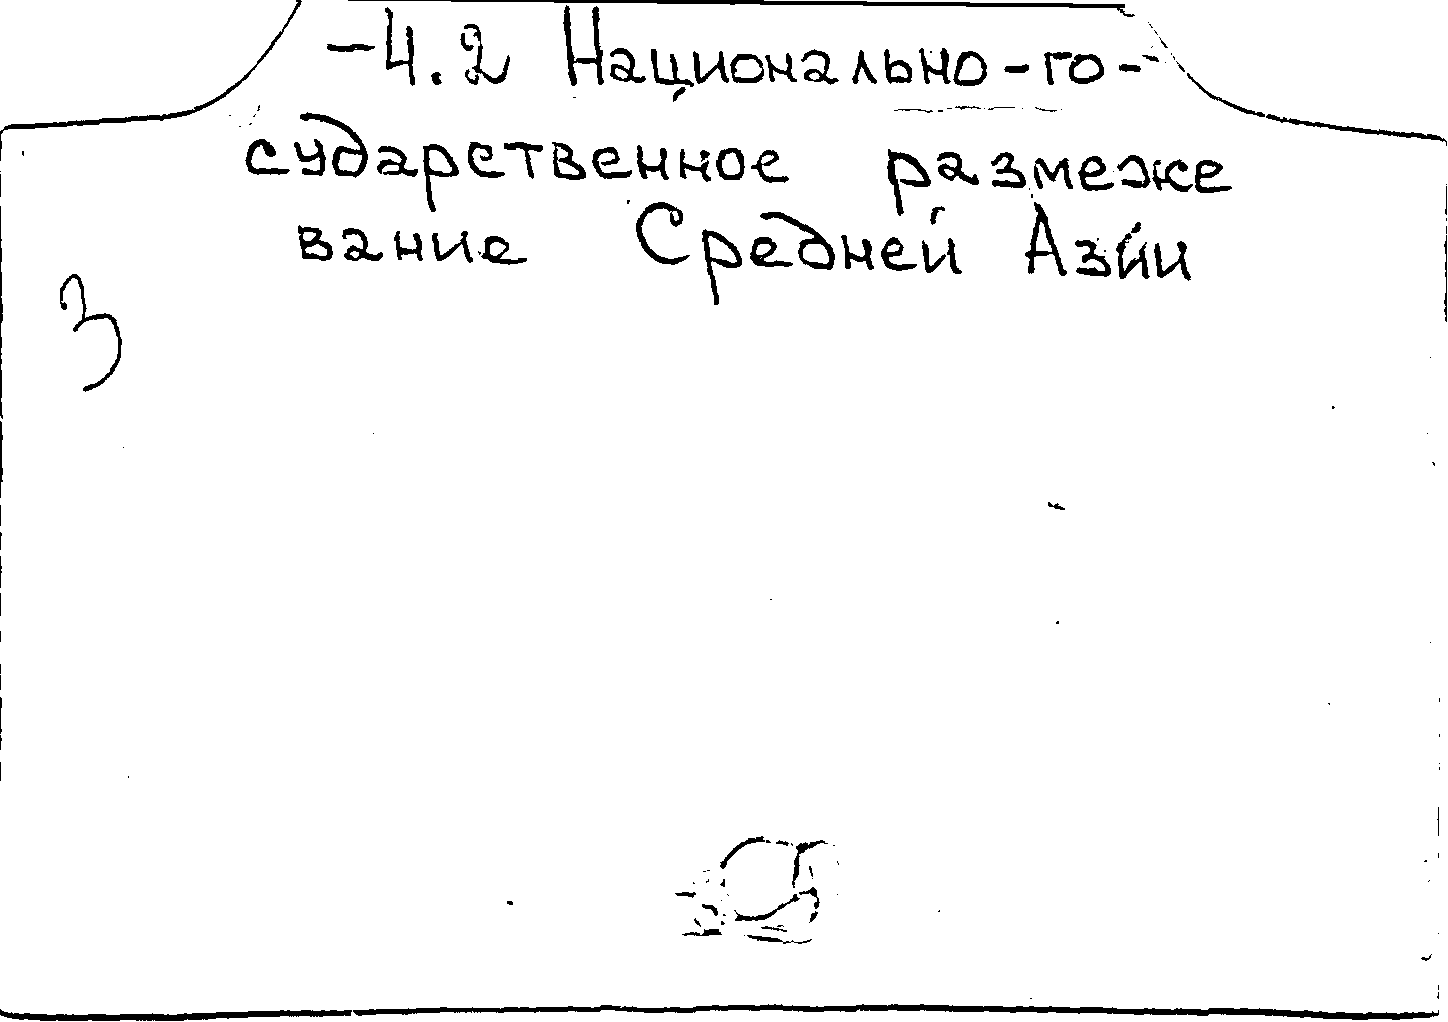 -4.2 Национально-го-
сударственное размеже
вание Средней Азии
3